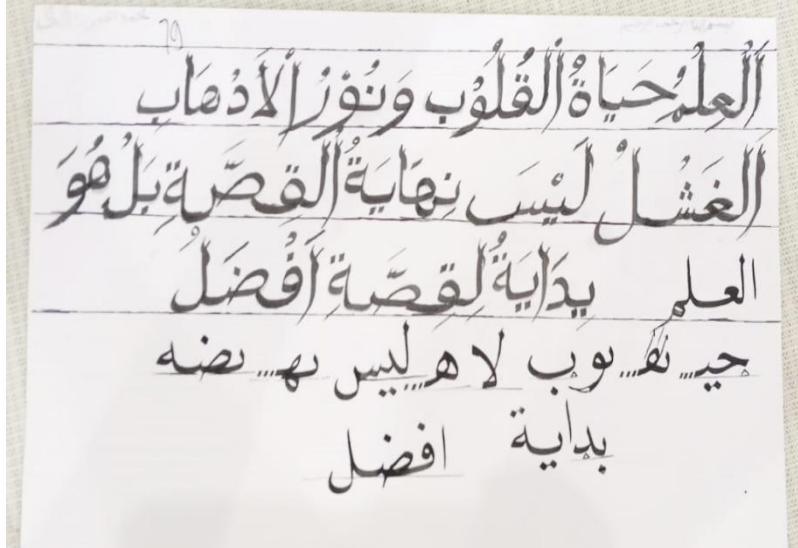 ٦٩
اَلْعِلْمُ حَيَاةُ اُلْقُلُوْبِ وَنُوْرُ اْلَأدْهَابِ
اَلْغَسْلُ لَيْسَ نِهَايَةُ اَلْقِصَّةِ بَلْ هُوَ
بِدَايَةُ لِقِصَّةِ اَفْضَلْ العلم
حيـ تقـ بوب لا هـ ليس بهـ بصه
بداية افضل